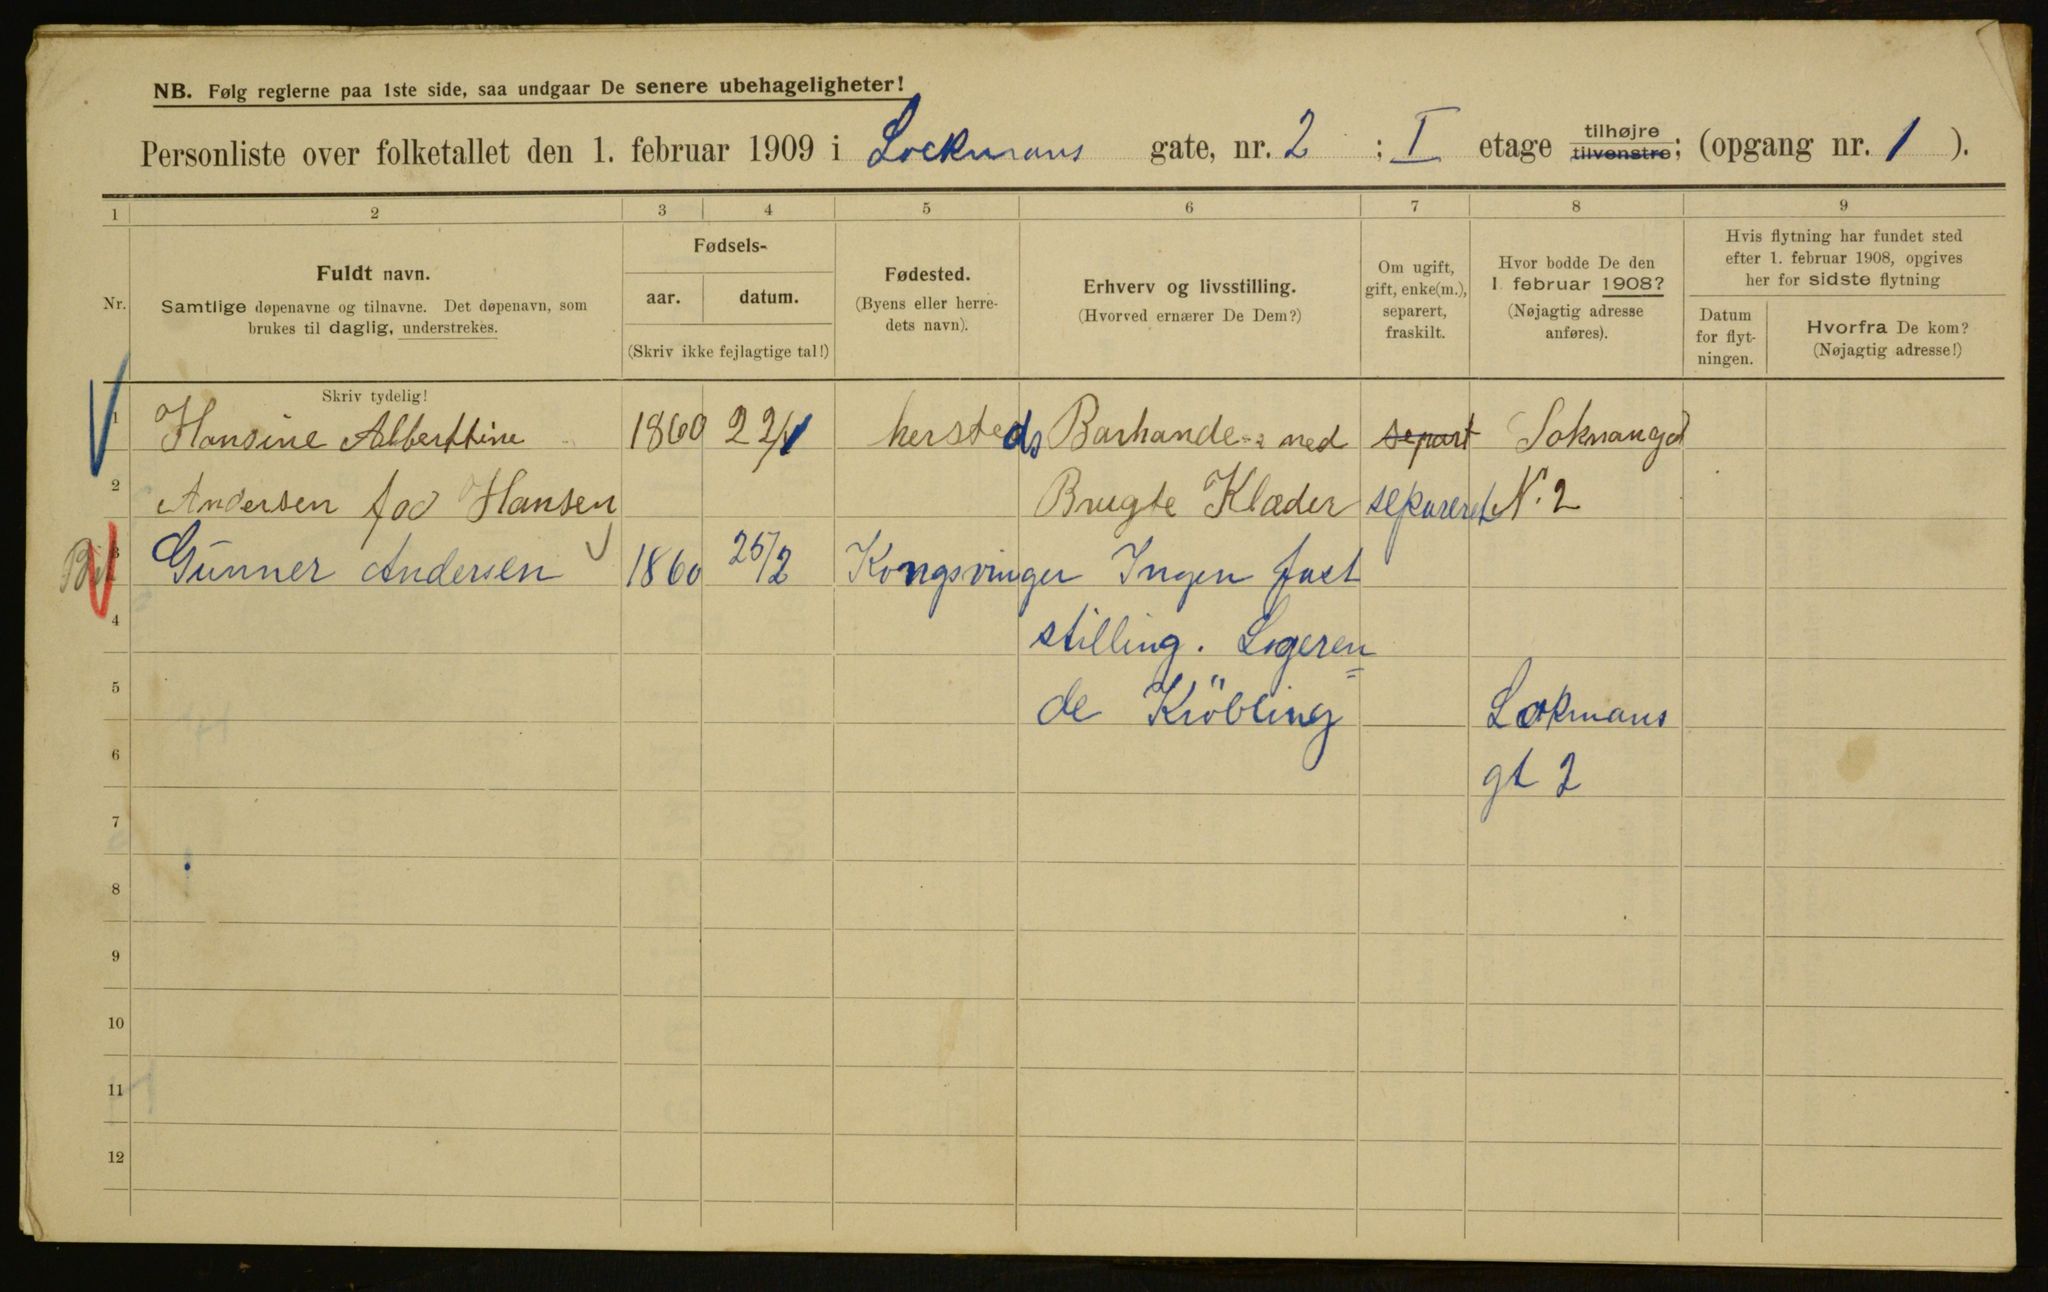 NB. Følg reglerne paa 1ste side, saa undgaar De senere ubehageligheter!
Personliste over folketallet den 1. februar 1909 i Lockmans gate, nr. 2 ; I etage tilhøjre tilvenstre; (opgang nr. 1 ).
1 2 3 4 5 6 7 8 9
Nr.
Fuldt navn.
Samtlige døpenavne og tilnavne. Det døpenavn, som
brukes til daglig, understrekes.
Fødsels-
aar. datum.
(Skriv ikke fejlagtige tal!)
Fødested.
(Byens eller herre-
dets navn).
Erhverv og livsstilling.
(Hvorved ernærer De Dem?)
Om ugift,
gift, enke(m.),
separert,
fraskilt.
Hvor bodde De den
1. februar 1908?
(Nøjagtig adresse
anføres).
Hvis flytning har fundet sted
efter 1. februar 1908, opgives
her for sidste flytning
Datum
for flyt-
ningen.
Hvorfra De kom?
(Nøjagtig adresse!)
Skriv tydelig!
1 Hansine Alberttine 1860 22/1 hersteds Barhande ned separt
2 Andersen fød Hansen Brugte Klæder separeret N. 2
3 Gunner Andersen 1860 25/2 Kongsvinger Ingen fast
4 stilling. Logeren=
5 de Kröbling Lokmans
6 gt 2
7
8
9
10
11
12